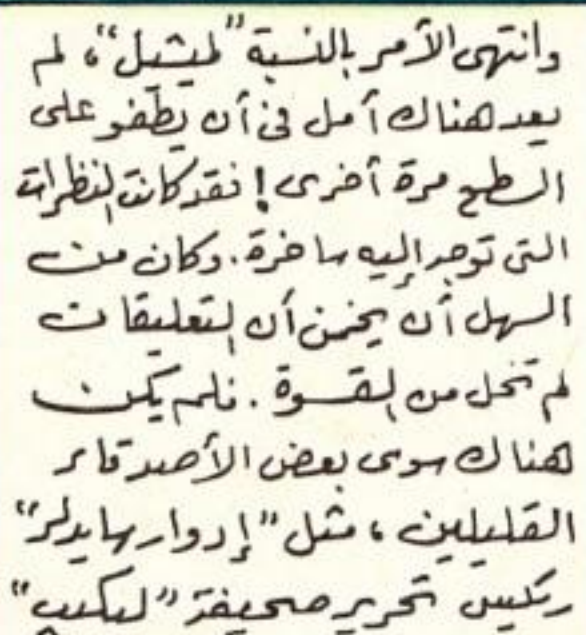 وانتهى الأمر بالنسبة "لميشيل"، لم
يعد هناك أمل في أن يطفو على
السطح مرة أخرى! فقد كانت النظرات
التي توجه إليه ساخرة. وكان من
السهل أن يخمن أن التعليقات
لم تخل من القسوة. فلم يكن
هناك سوى بعض الأصدقاء
القليلين، مثل "إدوار
رئيس تحرير صحيفة